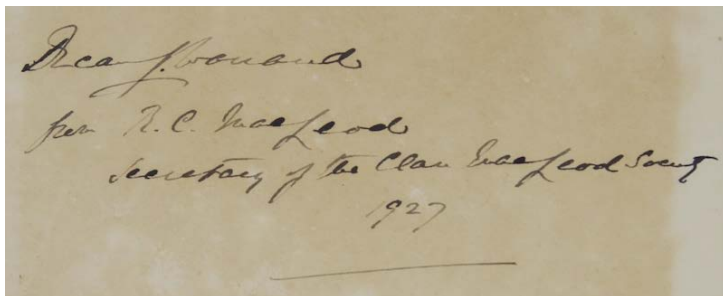 from R. C. MacLeod
Secretary of the Clan MacLeod Society
1927